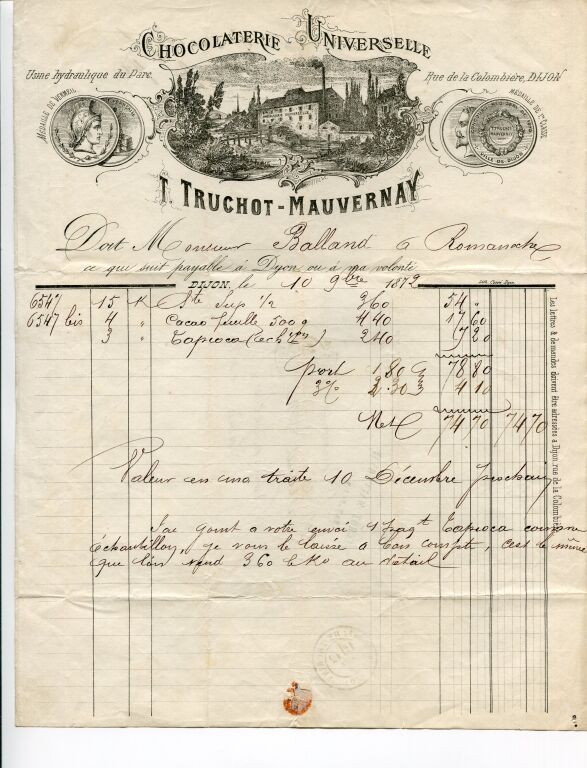 CHOCOLATERIE UNIVERSELLE
Usine hydraulique du Parc.
Rue de la Colombière, DIJON
MÉDAILLE DE VERMEIL
MÉDAILLE DE 1re CLASSE
VILLE DE DIJON
T. TRUCHOT-MAUVERNAY
Doit Monsieur Balland a Romanèche
ce qui suit payable à Dijon ou à ma volonté
DIJON, le 10 9bre 1872
6547 15 K Ste Sup 1/2 3 60 54 "
6547 bis 4 " Cacao feuille 500 g 4 40 17 60
3 " Tapioca (ech ) 2 40 7 20
port 1.80 78 80
3% 2.30 4 10
Net 74 70 74 70
Valeur en ma traite 10 Décembre prochain
J'ai joint a votre envoi Tapioca comme
échantillon, je vous le laisse a bon compte, c'est le même
que l'on vend 3 60 le Ko au détail
Les lettres & demandes doivent être adressées à Dijon, rue de la Colombière